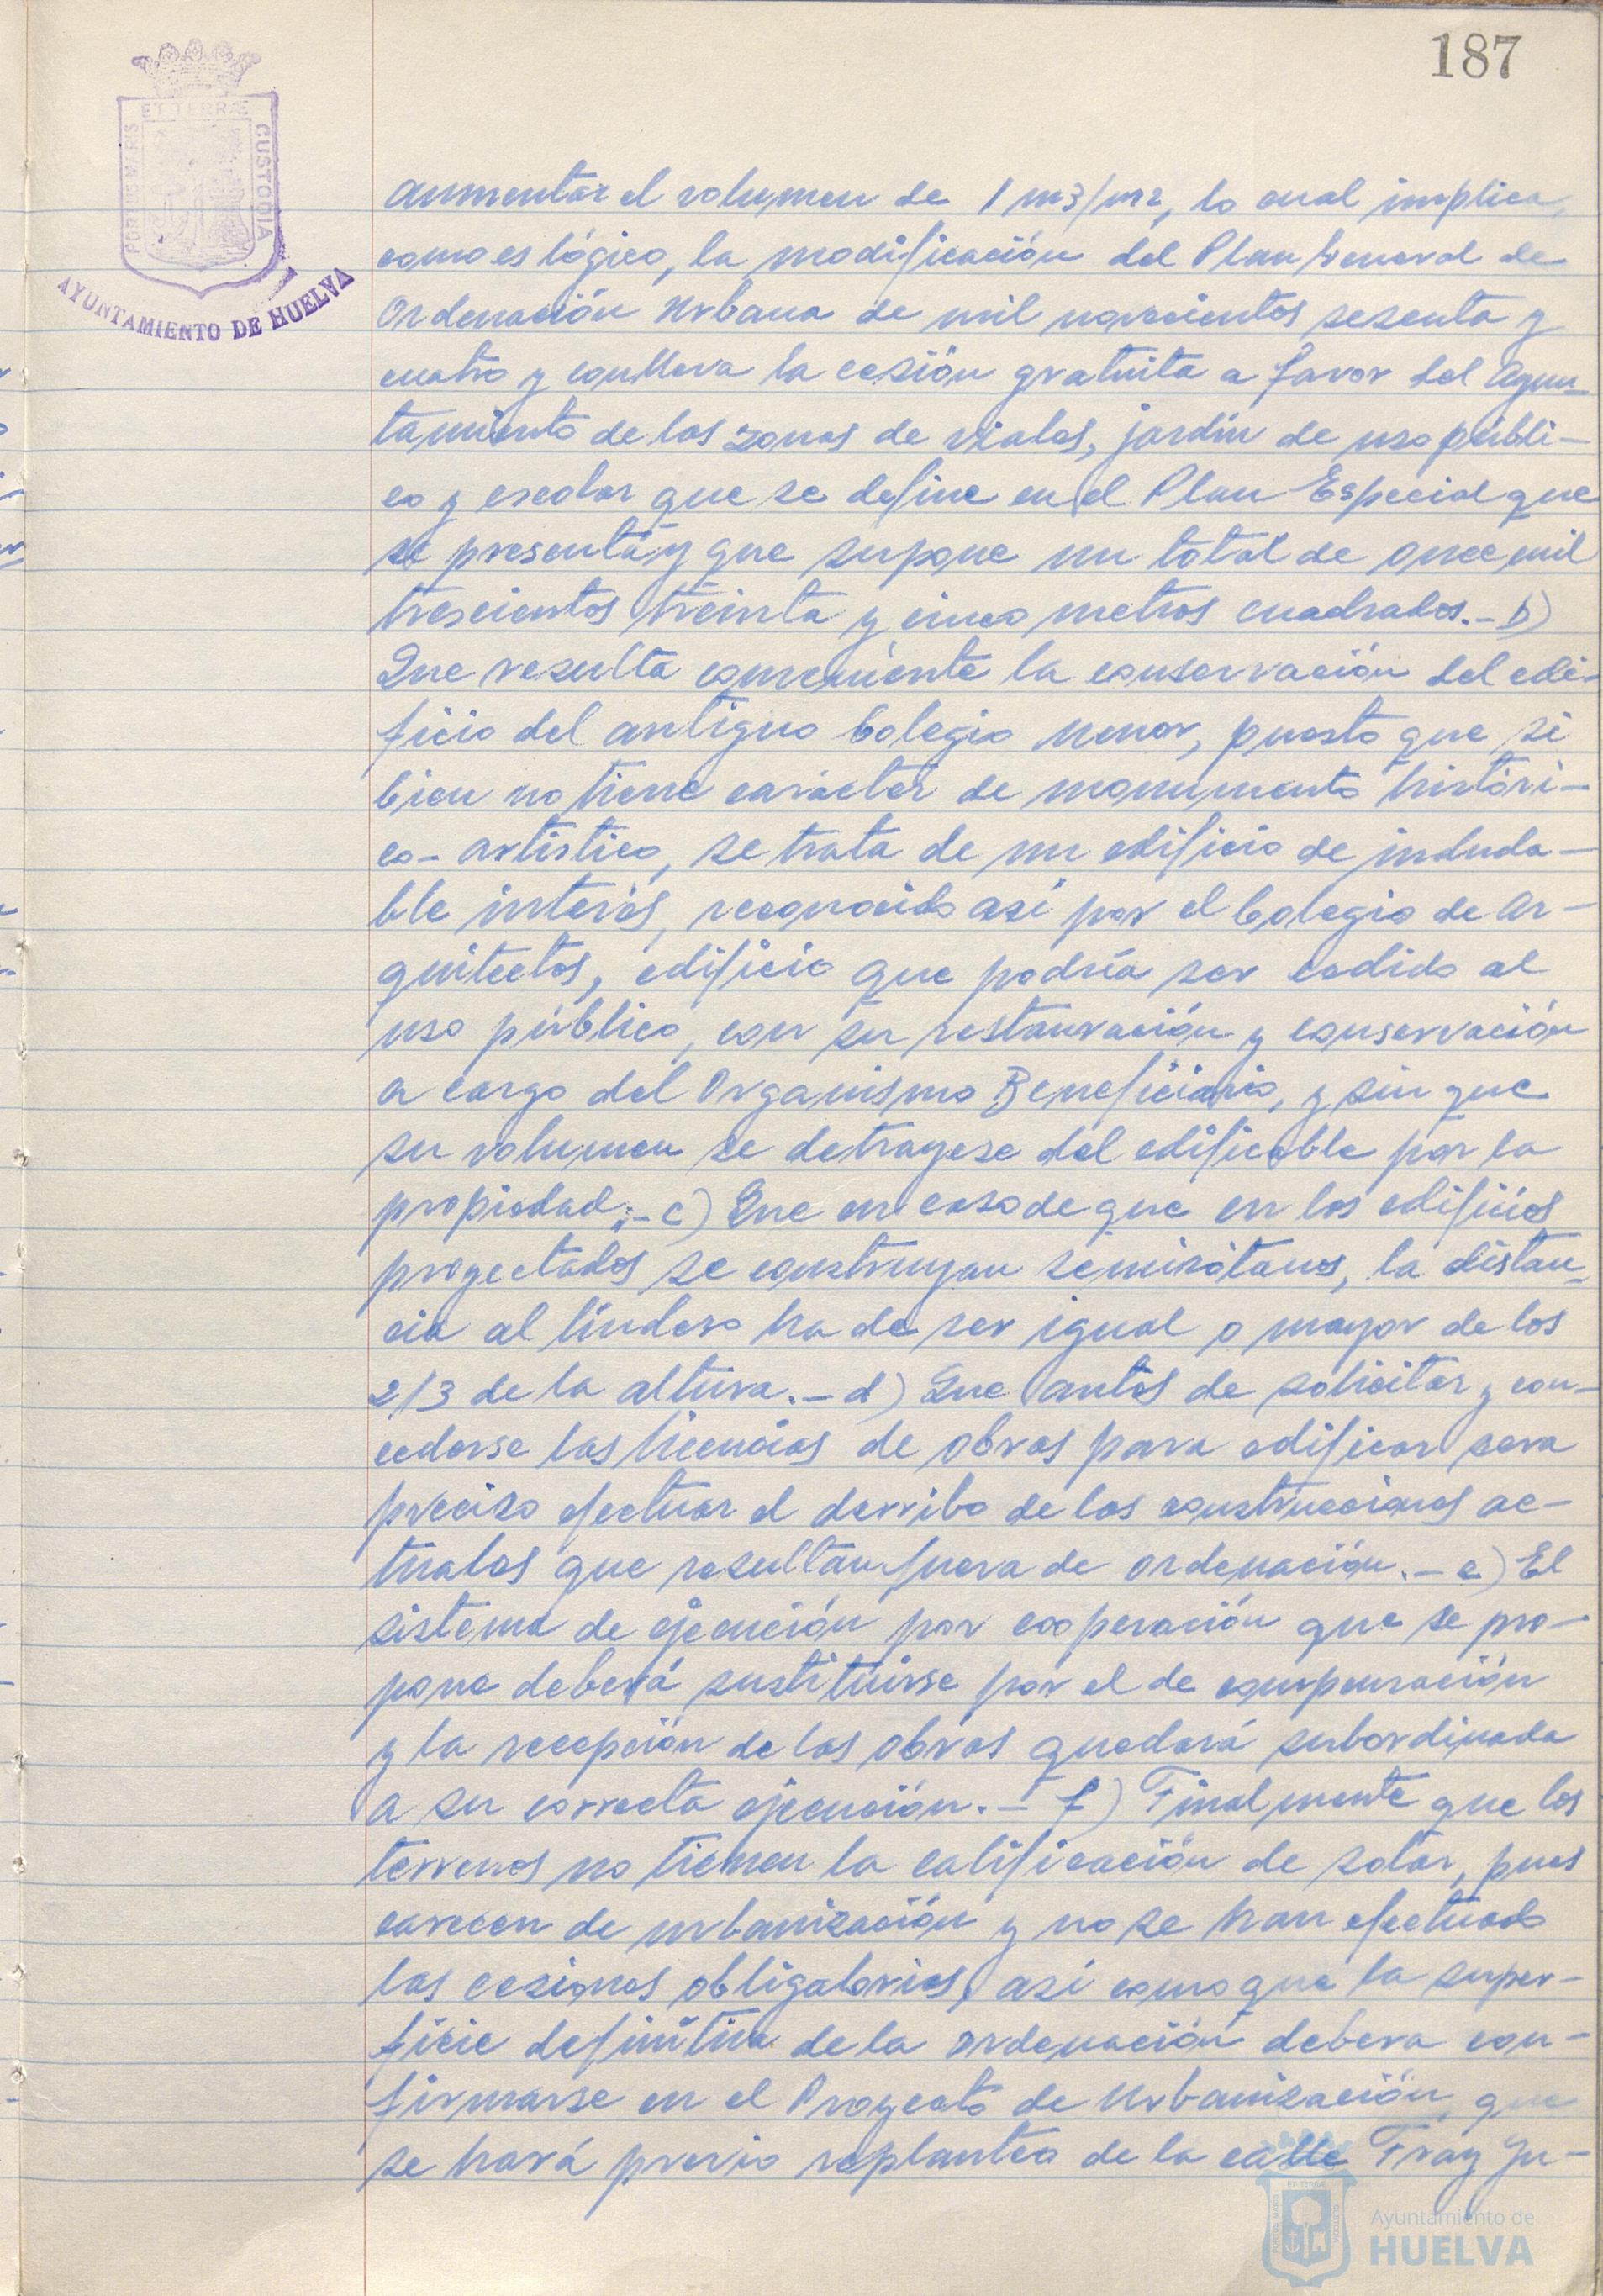 187
PORTUS MARIS
ET TERRÆ
CUSTODIA
AYUNTAMIENTO DE HUELVA
aumentar el volumen de 1 m3/m2, lo cual implica,
como es lógico, la modificación del Plan General de
Ordenación Urbana de mil novecientos sesenta y
cuatro y conlleva la cesión gratuita a favor del Ayun-
tamiento de las zonas de viales, jardín de uso públi-
co y escolar que se define en el Plan Especial que
se presenta y que supone un total de once mil
trescientos treinta y cinco metros cuadrados.- b)
Que resulta conveniente la conservación del edi-
ficio del antiguo Colegio Menor, puesto que si
bien no tiene carácter de monumento históri-
co- artístico, se trata de un edificio de induda-
ble interés, reconocido así por el Colegio de Ar-
quitectos, edificio que podría ser cedido al
uso público, con su restauración y conservación
a cargo del Organismo Beneficiario, y sin que
su volumen se detrayese del edificable por la
propiedad;- c) Que en caso de que en los edificios
proyectados se construyan semisótanos, la distan-
cia al lindero ha de ser igual o mayor de los
2/3 de la altura.- d) Que antes de solicitar y con-
cederse las licencias de obras para edificar sera
preciso efectuar el derribo de las construcciones ac-
tuales que resultan fuera de ordenación.- e) El
sistema de ejecución por cooperación que se pro-
pone deberá sustituirse por el de compensación
y la recepción de las obras quedará subordinada
a su correcta ejecución.- f) Finalmente que los
terrenos no tienen la calificación de solar, pues
carecen de urbanización y no se han efectuado
las cesiones obligatorias, así como que la super-
ficie definitiva de la ordenación debera con-
firmarse en el Proyecto de Urbanización, que
se hará previo replanteo de la calle Fray Ju-
Ayuntamiento de
HUELVA